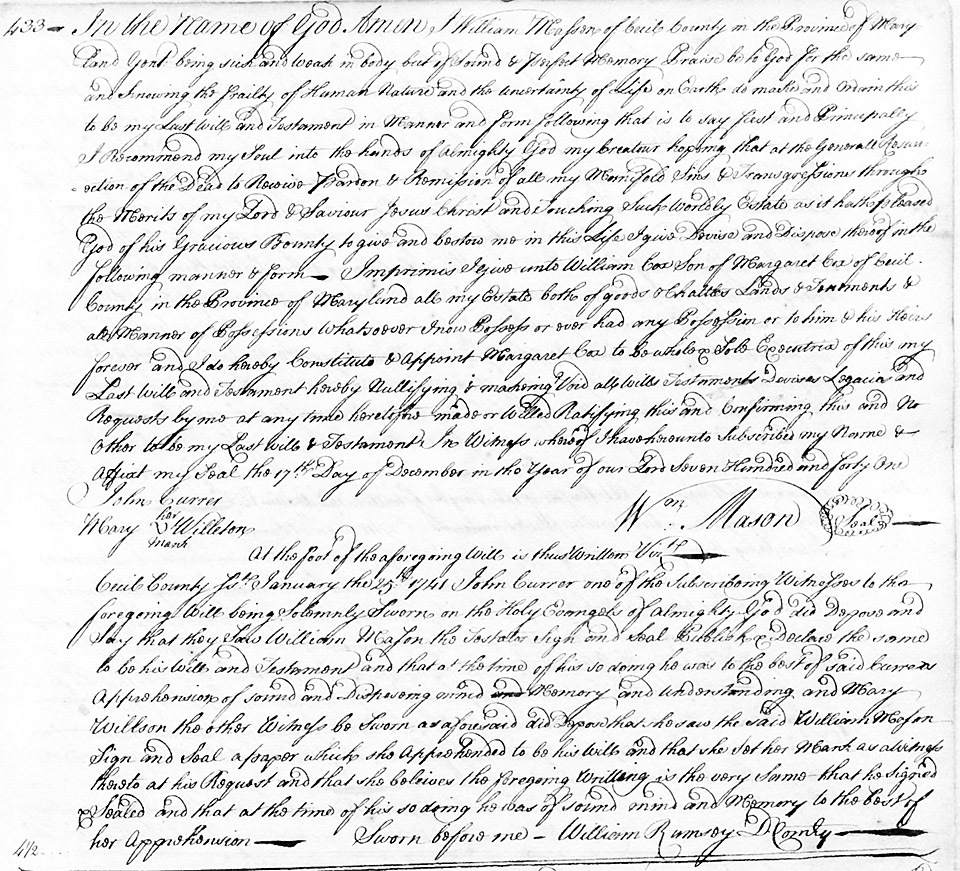 433 In the Name of God Amen I William Mason of Cecil County in the Province of Mary
land Gent being sick and weak in body but of Sound & Perfect Memory Praise be to God for the same
and Knowing the Frailty of Human Nature and the uncertainty of Life on Earth do make and Ordain this
to be my Last Will and Testament in Manner and form following that is to say first and Principally
I Recommend my Soul into the hands of almighty God my Creatour hoping that at the Generall Resurr
ection of the Dead to Receive Pardon & Remission of all my Manifold Sins & Transgressions through
the Merits of my Lord & Saviour Jesus Christ and Touching Such Worldly Estate as it hath pleased
God of his Gracious Bounty to give and bestow me in this Life I give Devise and Dispose thereof in the
following manner & form Imprimis I give unto William Cox Son of Margaret Cox of Cecil
County in the Province of Maryland all my Estate both of goods & Chattles Lands & Tenements &
all Manner of Possessions Whatsoever I now Possess or ever had any Possession or to him & his Heirs
forever and I do hereby Constitute & Appoint Margaret Cox to be whole & Sole Executrix of this my
Last Will and Testament hereby Nullifying & making Void all Wills Testaments Devises Legacies and
Requests by me at any time heretofore made or Willed Ratifying this and Confirming this and No
Other to be my Last Will & Testament In Witness whereof I have hereunto Subscribed my Name &
Affixt my Seal the 17th Day of December in the Year of our Lord Seven Hundred and forty One
John Currer
Mary her Willson Wm Mason Seal
mark
At the foot of the aforegoing Will is thus Written Vizt
Cecil County Sst January the 25th 1741 John Currer one of the Subscribeing Witnesses to the
foregoing Will being Solemnly Sworn on the Holy Evangels of almighty God did Depose and
Say that they Saw William Mason the Testator Sign and Seal Publish & Declare the same
to be his Will and Testament and that at the time of his so doing he was to the best of said Currers
Apprehension of sound and Disposeing mind and Memory and understanding and Mary
Willson the other Witness be Sworn as aforesaid did Depose that she saw the Said William Mason
Sign and Seal a paper which she Apprehended to be his Will and that she set her Mark as a witness
thereto at his Request and that she beleives the foregoing Writing is the very Same that he Signed
& Sealed and that at the time of his so doing he was of sound mind and Memory to the best of
her Apprehension Sworn before me William Rumsey D Comty